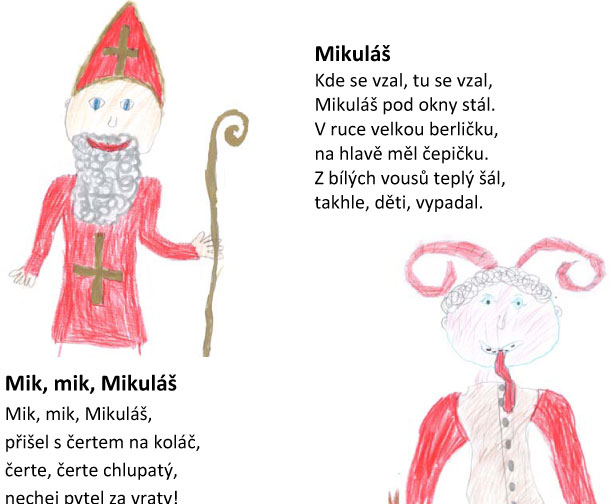 Mikuláš
Kde se vzal, tu se vzal,
Mikuláš pod okny stál.
V ruce velkou berličku,
na hlavě měl čepičku.
Z bílých vousů teplý šál,
takhle, děti, vypadal.
Mik, mik, Mikuláš
Mik, mik, Mikuláš,
přišel s čertem na koláč,
čerte, čerte chlupatý,
nechej pytel za vraty!